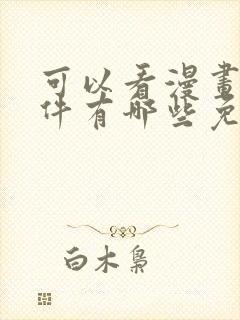 可以看漫畫
件有哪些免
白木梟